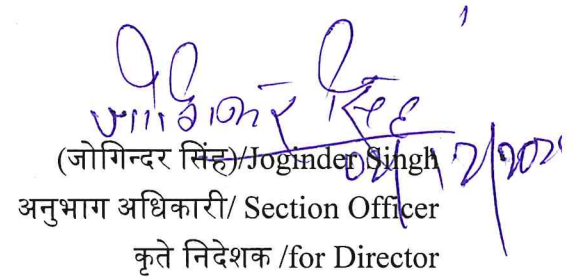 जोगिन्दर सिंह
(जोगिन्दर सिंह)/Joginder Singh
अनुभाग अधिकारी/ Section Officer
कृते निदेशक /for Director